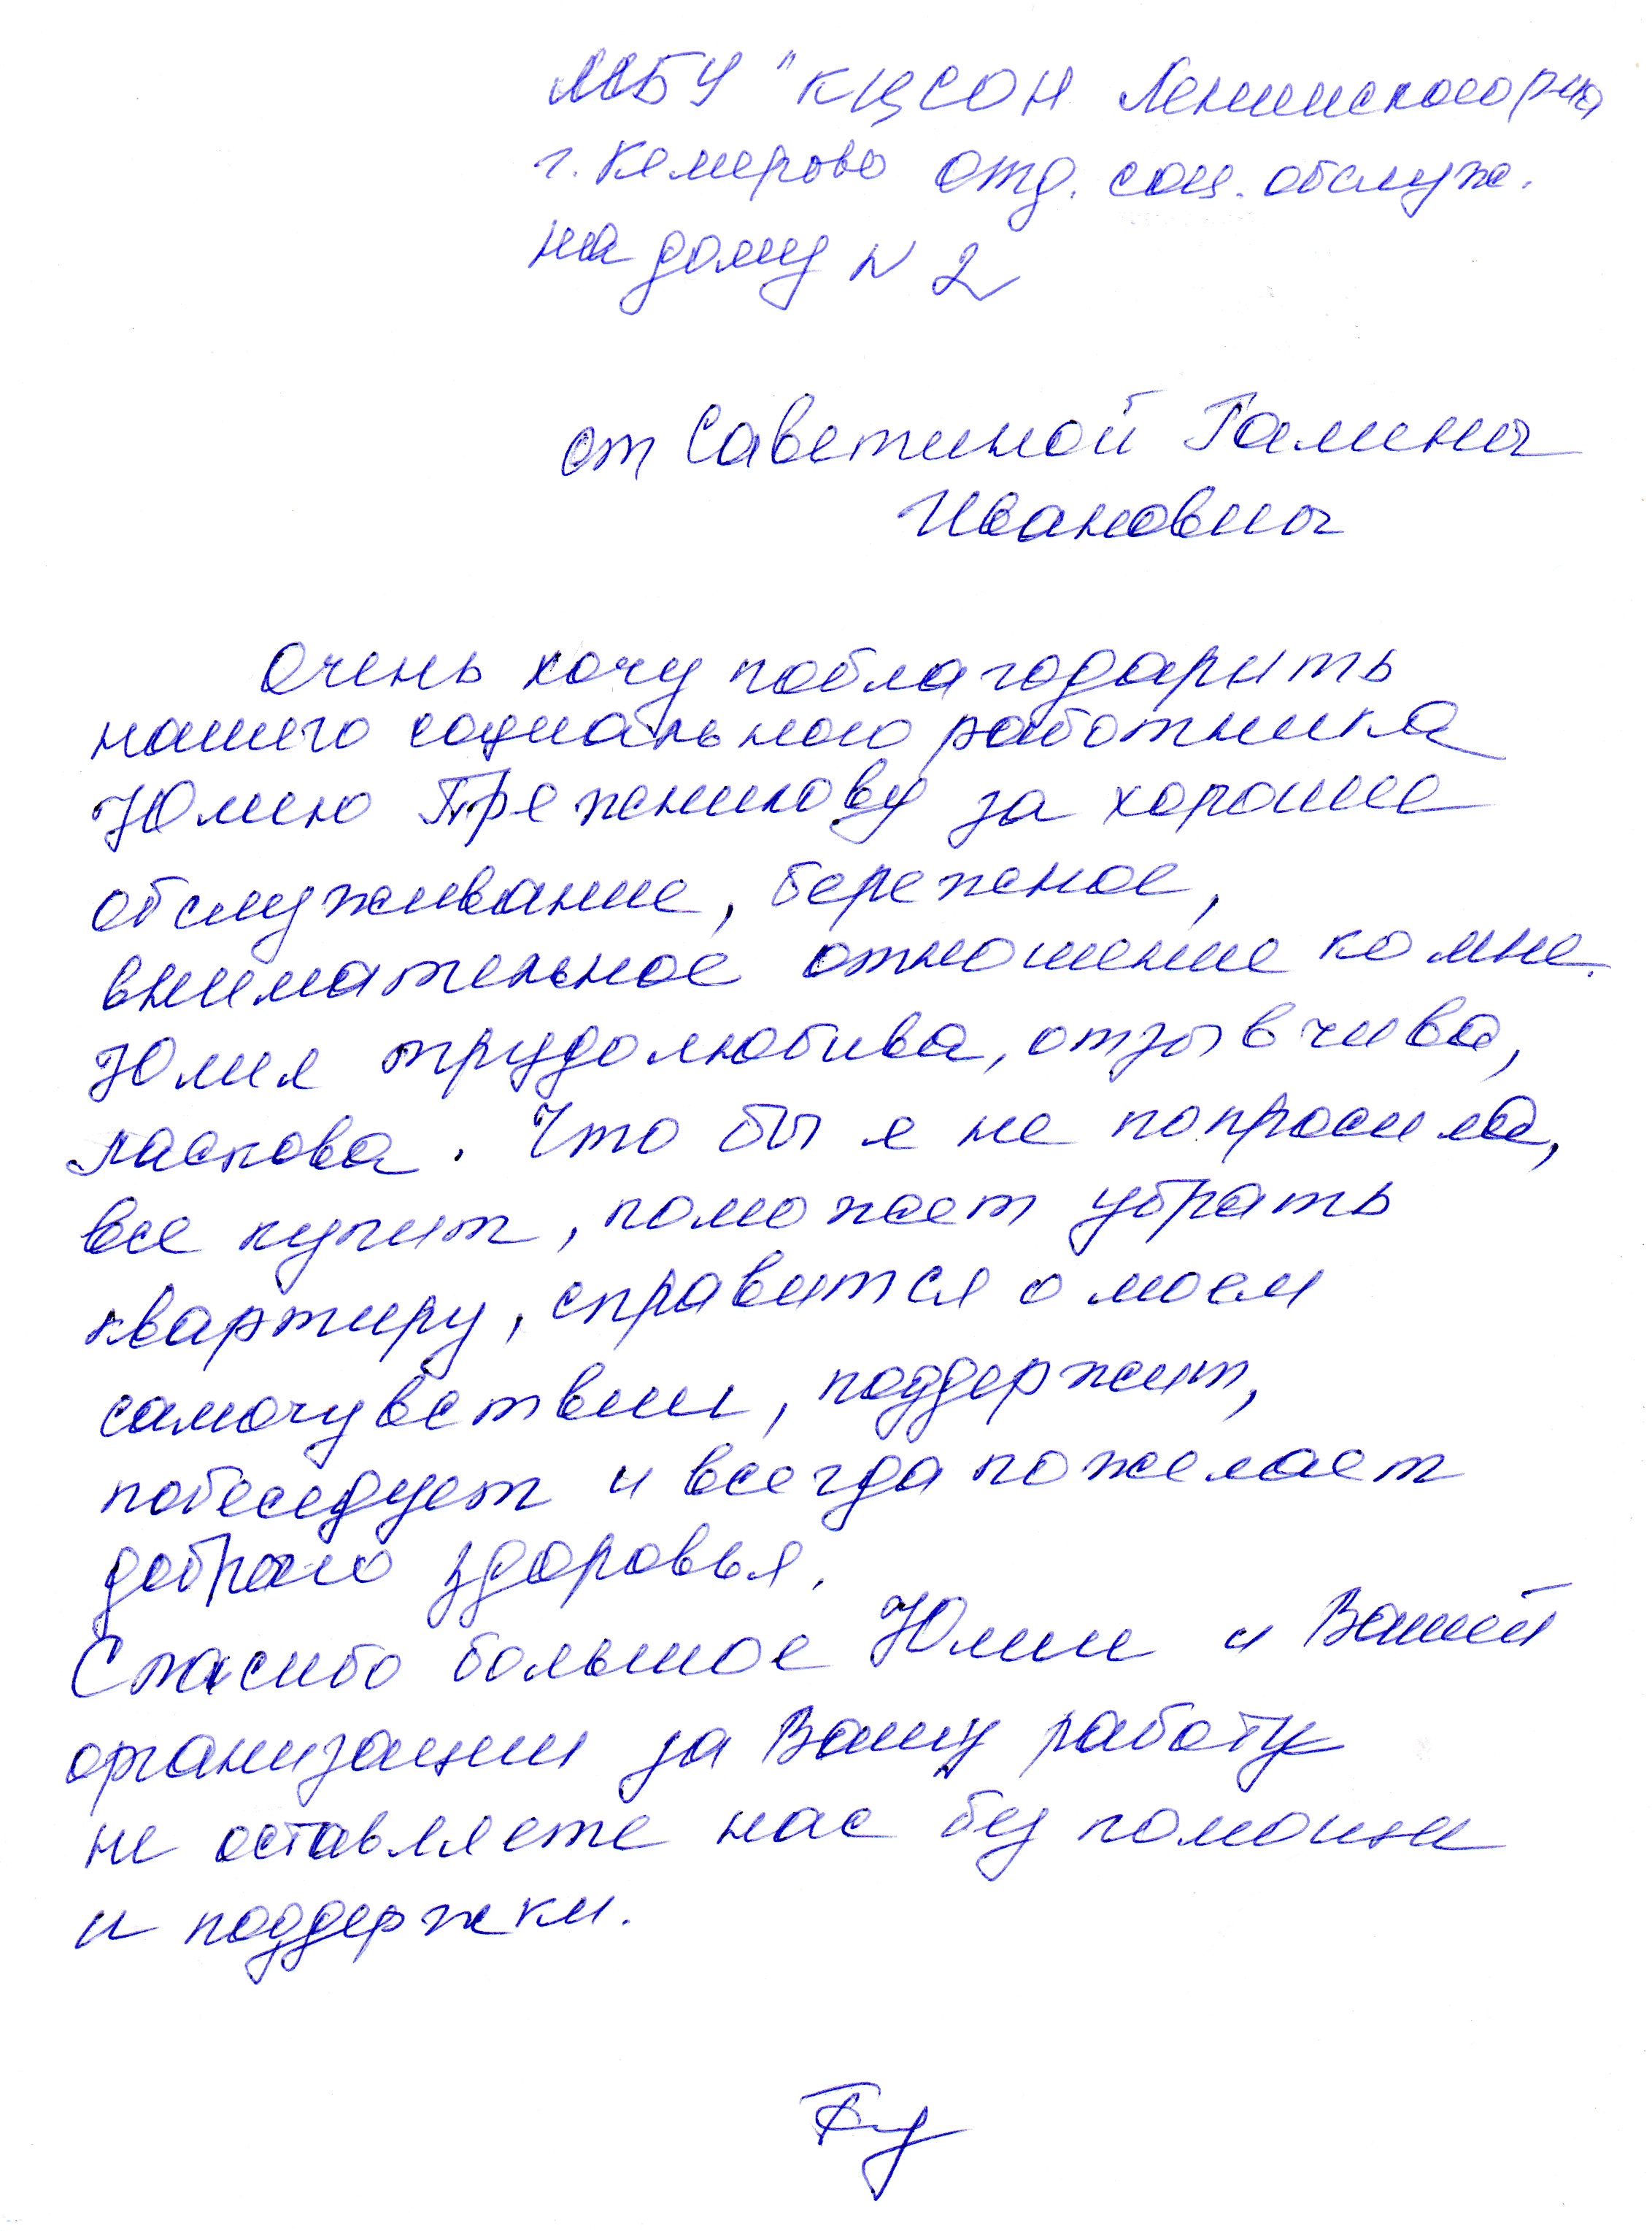 МБУ "КЦСОН Ленинского р-на
г. Кемерово отд. соц. обслуж.
на дому N 2
от Саветиной Галины
Ивановны
Очень хочу поблагодарить
нашего социального работника
Юлию Прежникову за хорошее
обслуживание, бережное,
внимательное отношение ко мне.
Юлия трудолюбива, отзывчива,
ласкова. Что бы я не попросила,
все купит, поможет убрать
квартиру, справится о моем
самочувствии, поддержит,
побеседует и всегда пожелает
доброго здоровья.
Спасибо большое Юлии и Вашей
организации за Вашу работу
не оставляете нас без помощи
и поддержки.